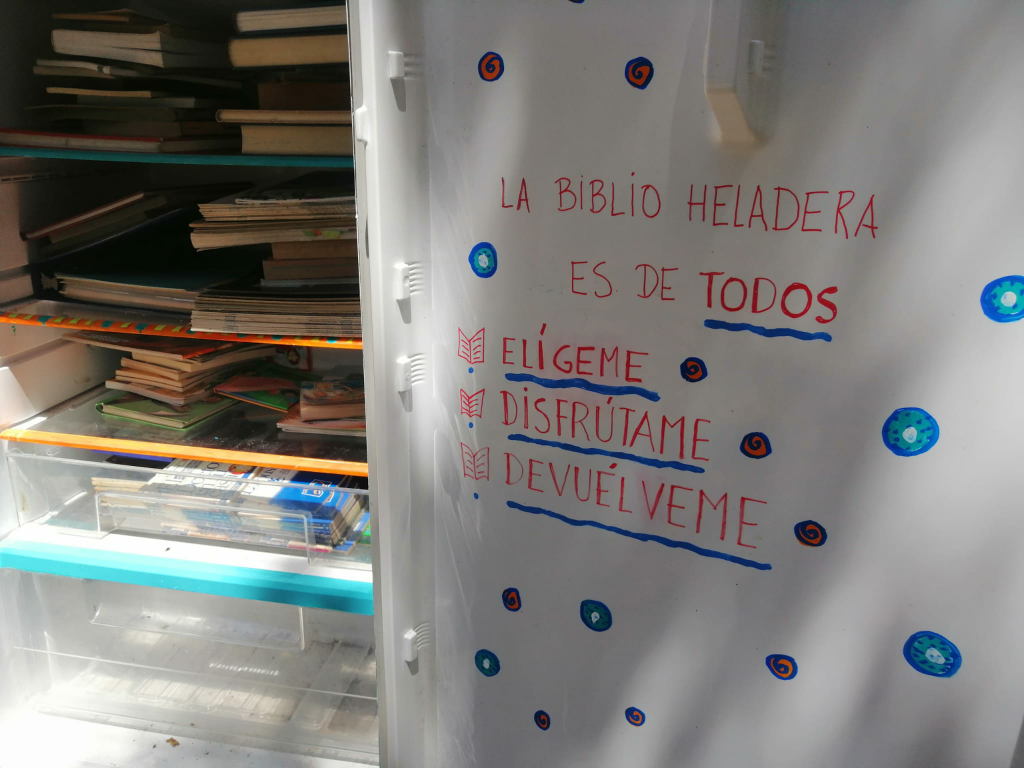 LA BIBLIO HELADERA
ES DE TODOS
ELÍGEME
DISFRÚTAME
DEVUÉLVEME